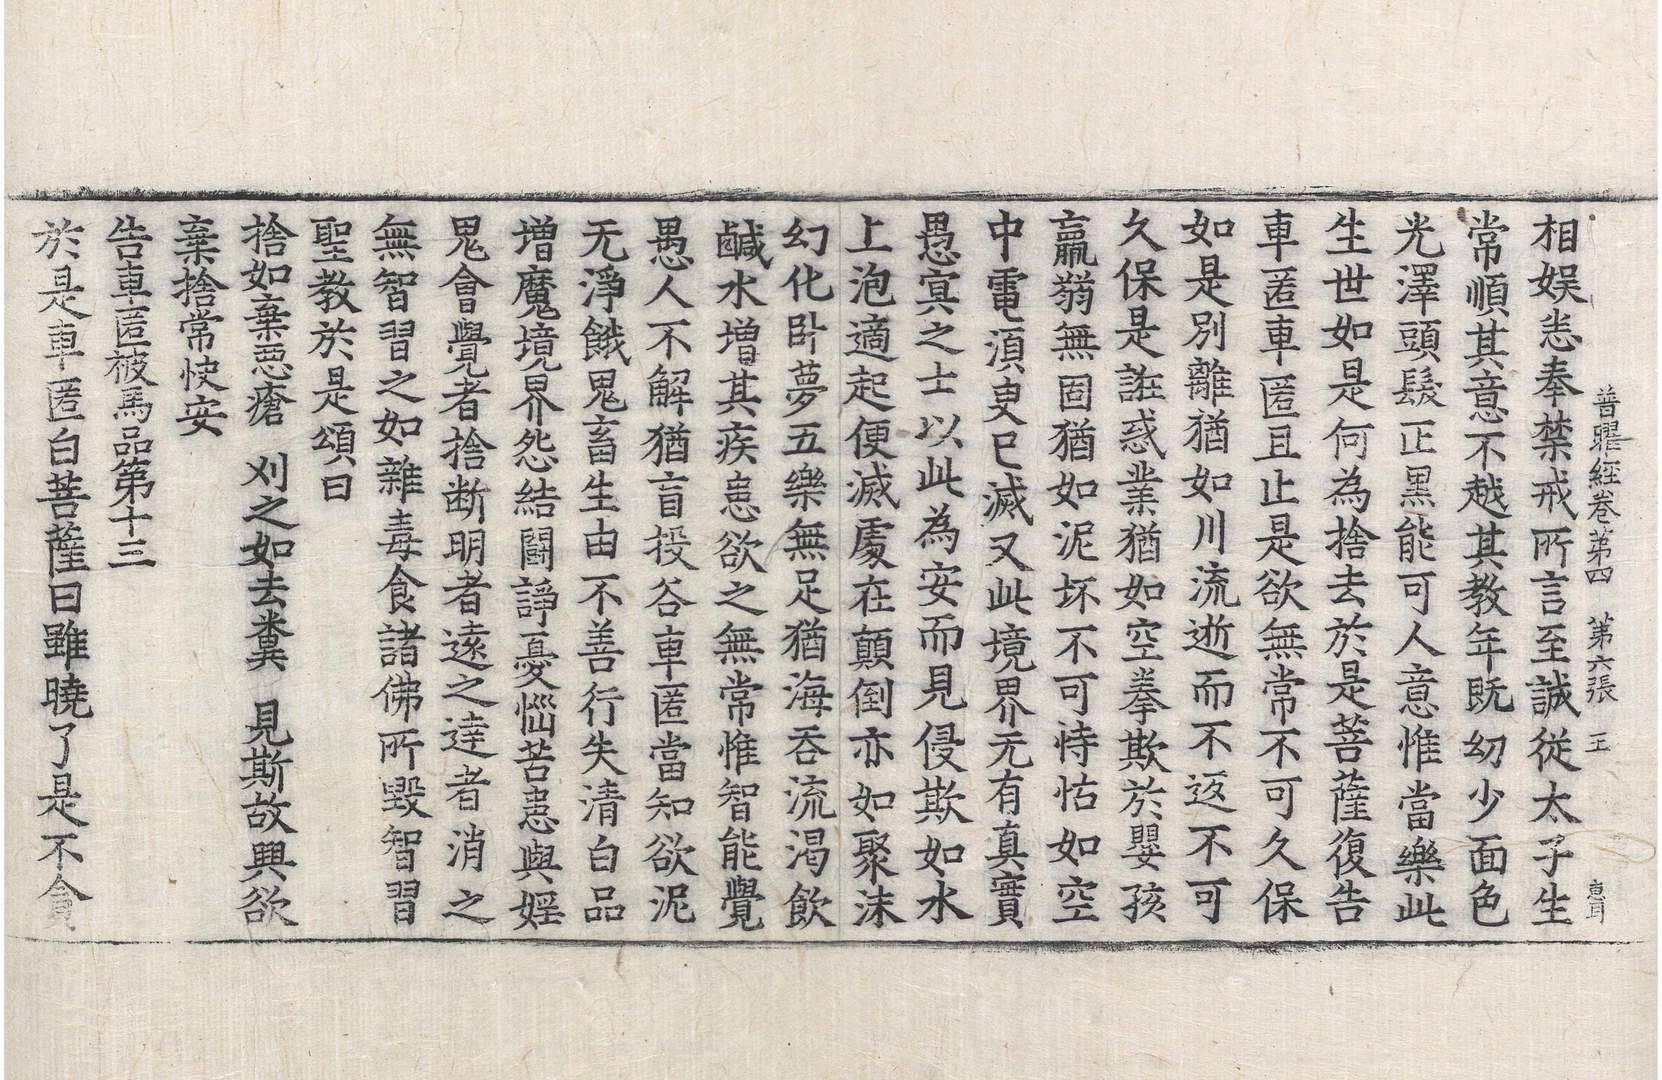 普曜經卷第四　第六張　王
相娱恙奉禁戒所言至誠從太子生
常順其意不越其教年既幼少面色
光澤頭髮正黑能可人意惟當樂此
生世如是何為捨去於是菩薩復告
車匿車匿且止是欲無常不可久保
如是別離猶如川流逝而不返不可
久保是誑惑業猶如空拳欺於嬰孩
羸弱無固猶如泥坏不可恃怙如空
中電須臾已滅又此境界无有真實
愚㝠之士以此為安而見侵欺如水
上泡適起便滅處在顛倒亦如聚沫
幻化卧夢五樂無足猶海吞流渴飲
鹹水增其疾患欲之無常惟智能覺
愚人不解猶盲投谷車匿當知欲泥
无淨餓鬼畜生由不善行失清白品
增魔境界怨結鬪諍憂惱苦患與婬
鬼會覺者捨断明者遠之達者消之
無智習之如雜毒食諸佛所毀智習
聖教於是頌曰
捨如棄惡瘡　刈之如去糞　見斯故興欲
棄捨常快安
告車匿被馬品第十三
於是車匿白菩薩曰雖曉了是不貪